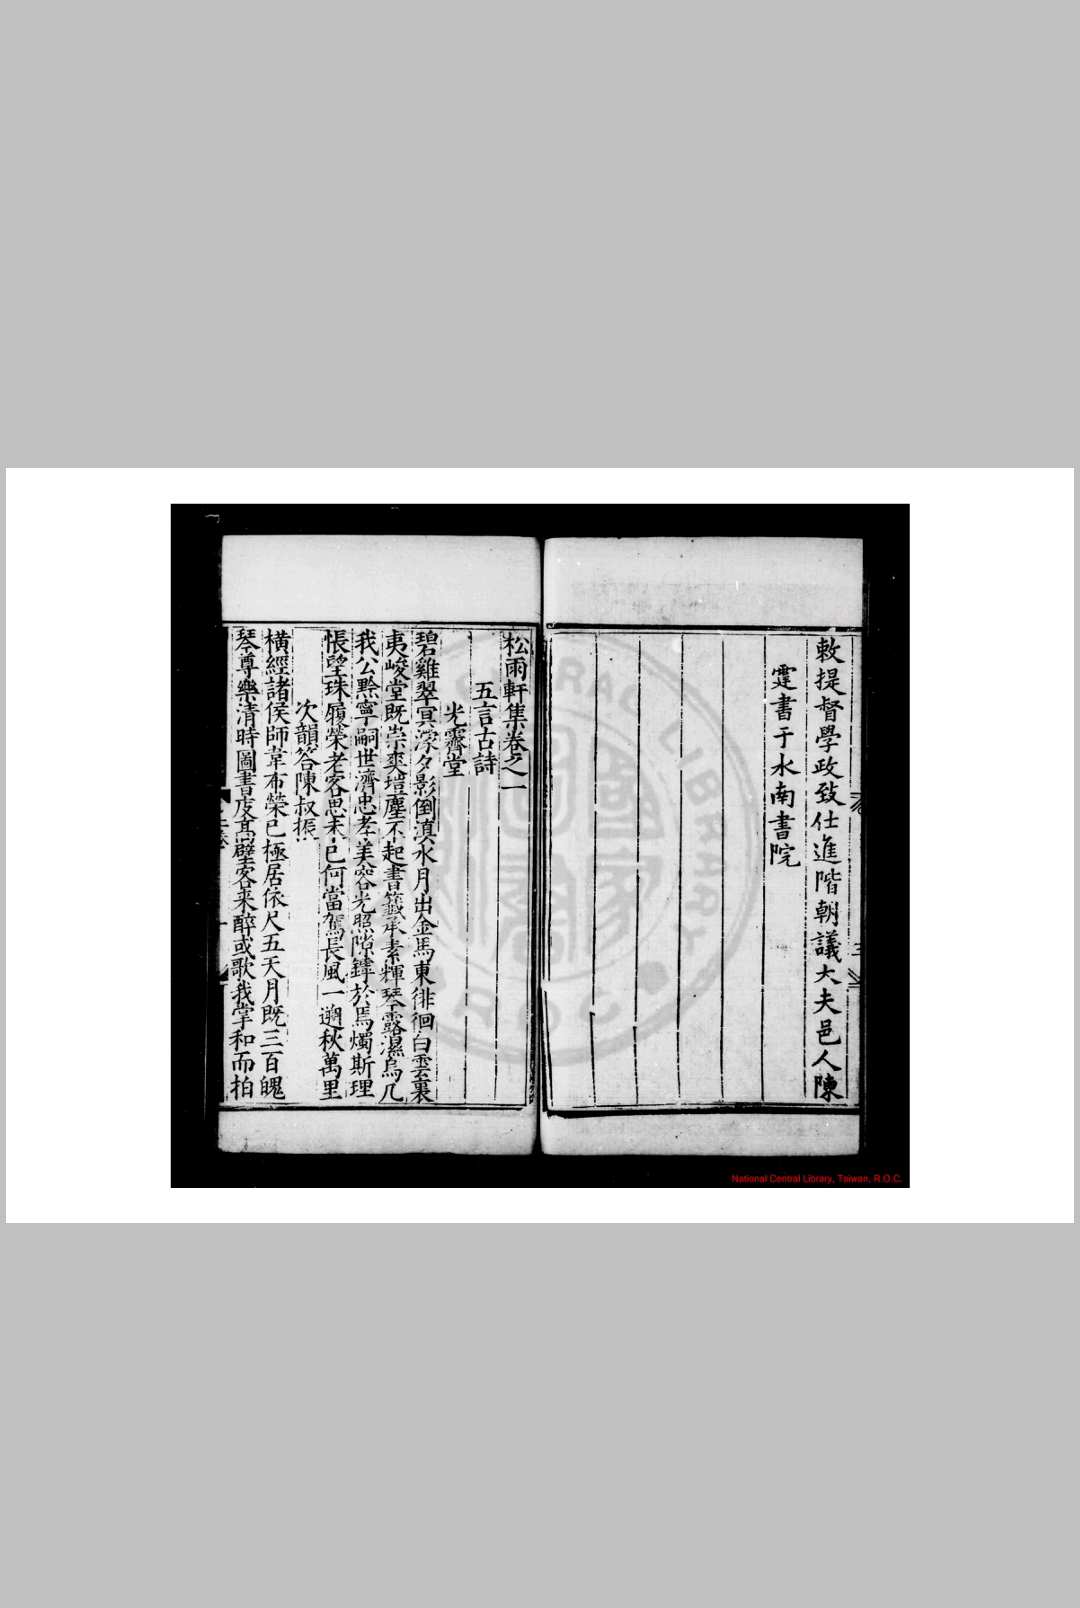 敕提督學政致仕進階朝議大夫邑人陳
霆書于水南書院
松雨軒集卷之一
五言古詩
光霽堂
碧雞翠冥濛夕影倒滇水月出金馬東徘徊白雲裏
夷峻堂既崇爽塏塵不起書籤承素輝琴露濕烏几
我公黔寧嗣世濟忠孝美容光照隙罅於焉燭斯理
悵望珠履榮老客思未已何當駕長風一遡秋萬里
次韻答陳叔振
橫經諸侯師韋布榮已極居依尺五天月既三百魄
琴尊樂清時圖書庋髙壁客来醉或歌我掌和而拍
National Central Library, Taiwan, R.O.C.